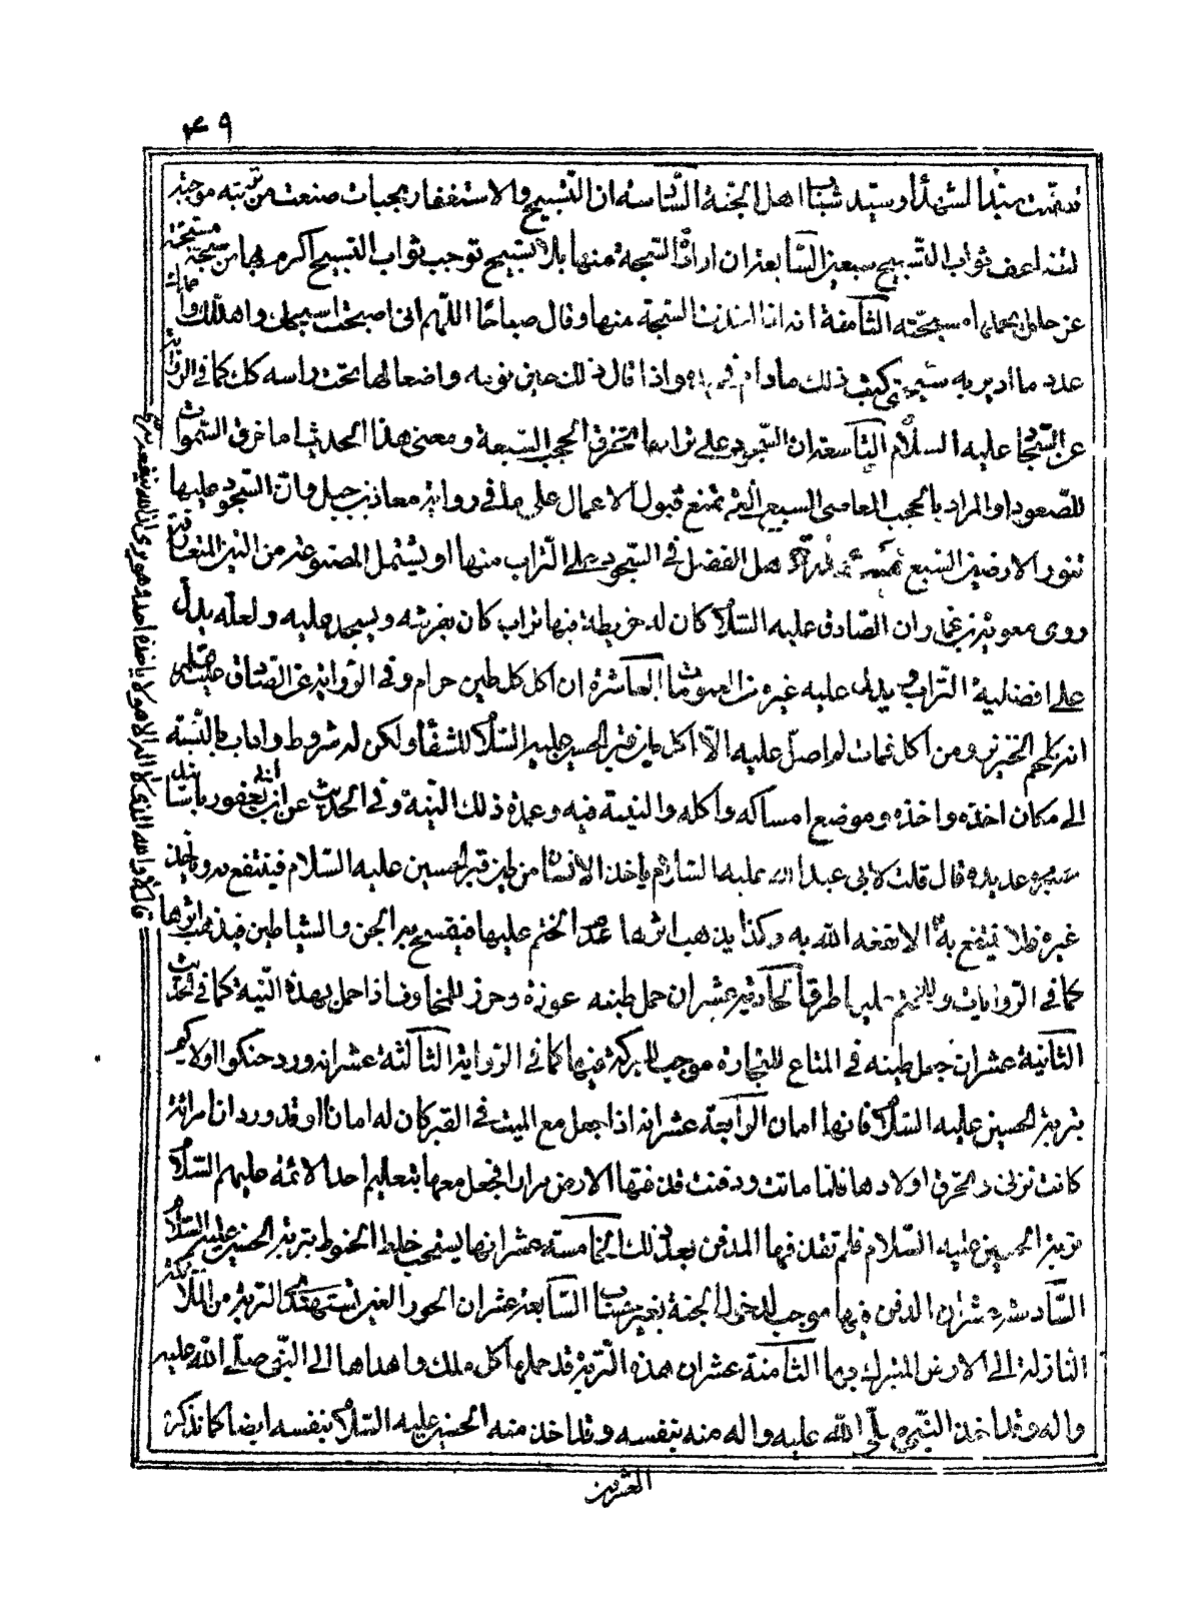 ۴۹
سيد الشهدا وسيد شباب اهل الجنة السادسة ان التسبيح والاستغفار بحبات صنعت من تربته موجبة
ثواب التسبيح سبعين السابعة ان ادارة السبحة منها بلا تسبيح توجب ثواب التسبيح اكرم بها من سبحة مسبحة
عن حاملها الثامنة انه اذا السبحة منها وقال صباحًا اللهم انى اصبحت اسبحك واهللك و
عدد ما ادير به سبحتى كتب ذلك مادام فى واذا قال ذلك حين نومه واضعا لها تحت راسه كل كما فى الرواية
عن السجاد عليه السلام التاسعة ان السجود على ترابها تخرق الحجب السبعة ومعنى هذا الحديث اما خرق السموات
للصعود او المراد بالحجب المعاصى السبع التى تمنع قبول الاعمال على ما فى رواية معاذ بن جبل وان السجود عليها
تنور الارضين السبع هل الفضل فى السجود على التراب منها او يشتمل المصنوعة من التربة المتعارفة
روى معوية بن عمار ان الصادق عليه السلام كان له خريطة فيها تراب كان يفرشه ويسجد عليه ولعله يدل
على افضلية التراب ويدل عليه غيره من العمومات العاشرة ان اكل كل طين حرام وفى الرواية عن الصادق عليه السلام
انه كلحم الخنزير ومن اكل فمات لم اصل عليه الا اكل طين قبر الحسين عليه السلام للشفاء ولكن له شروط واداب بالنسبة
الى مكان اخذه واخذه وموضع امساكه واكله والنية فيه وعمدة ذلك النية وفى الحديث عن ابن ابى يعفور باسانيد
عديده قال قلت لابى عبد الله عليه السلام ياخذ الانسان من طين قبر الحسين عليه السلام فينتفع به وياخذ
غيره فلا ينتفع به الا نفعه الله به وكذا يذهب اثرها عدم الختم عليها فيتمسح بها الجن والشياطين فيذهب اثرها
كما فى الروايات وللختم عليها طرق الحادية عشر ان حمل طينه عوذة وحرز للمخاوف اذا حمل بهذه النية كما فى الحديث
الثانية عشر ان جعل طينه فى المتاع للتجارة موجب للبركة فيها كما فى الرواية الثالثة عشر انه ورد حنكوا اولادكم
بتربة الحسين عليه السلام فانها امان الرابعة عشر انه اذا جعل مع الميت فى القبر كان له امانا وقد ورد ان امراة
كانت تزنى وتحرق اولادها فلما ماتت ودفنت قذفتها الارض مرارا فجعل معها بتعليم احد الائمة عليهم السلام
تربة الحسين عليه السلام فلم تقذفها المدفن بعد ذلك الخامسة عشر انها يستحب خلط الحنوط بتربة الحسين عليه السلام
السادسة عشر ان الدفن فيها موجب لدخول الجنة بغير حساب السابعة عشر ان الحور العين تستهدى التربة من الملائكة
النازلة الى الارض للتبرك بها الثامنة عشر ان هذه التربة قد حملها كل ملك واهداها الى النبى صلى الله عليه
واله وقد اخذ النبى صلى الله عليه واله منه بنفسه وقد اخذ منه الحسين عليه السلام بنفسه ايضا كما نذكره
فقال لا والله الذى لا اله الا هو لا ياخذه احد وهو يرى ان الله ينفعه به
العشرين